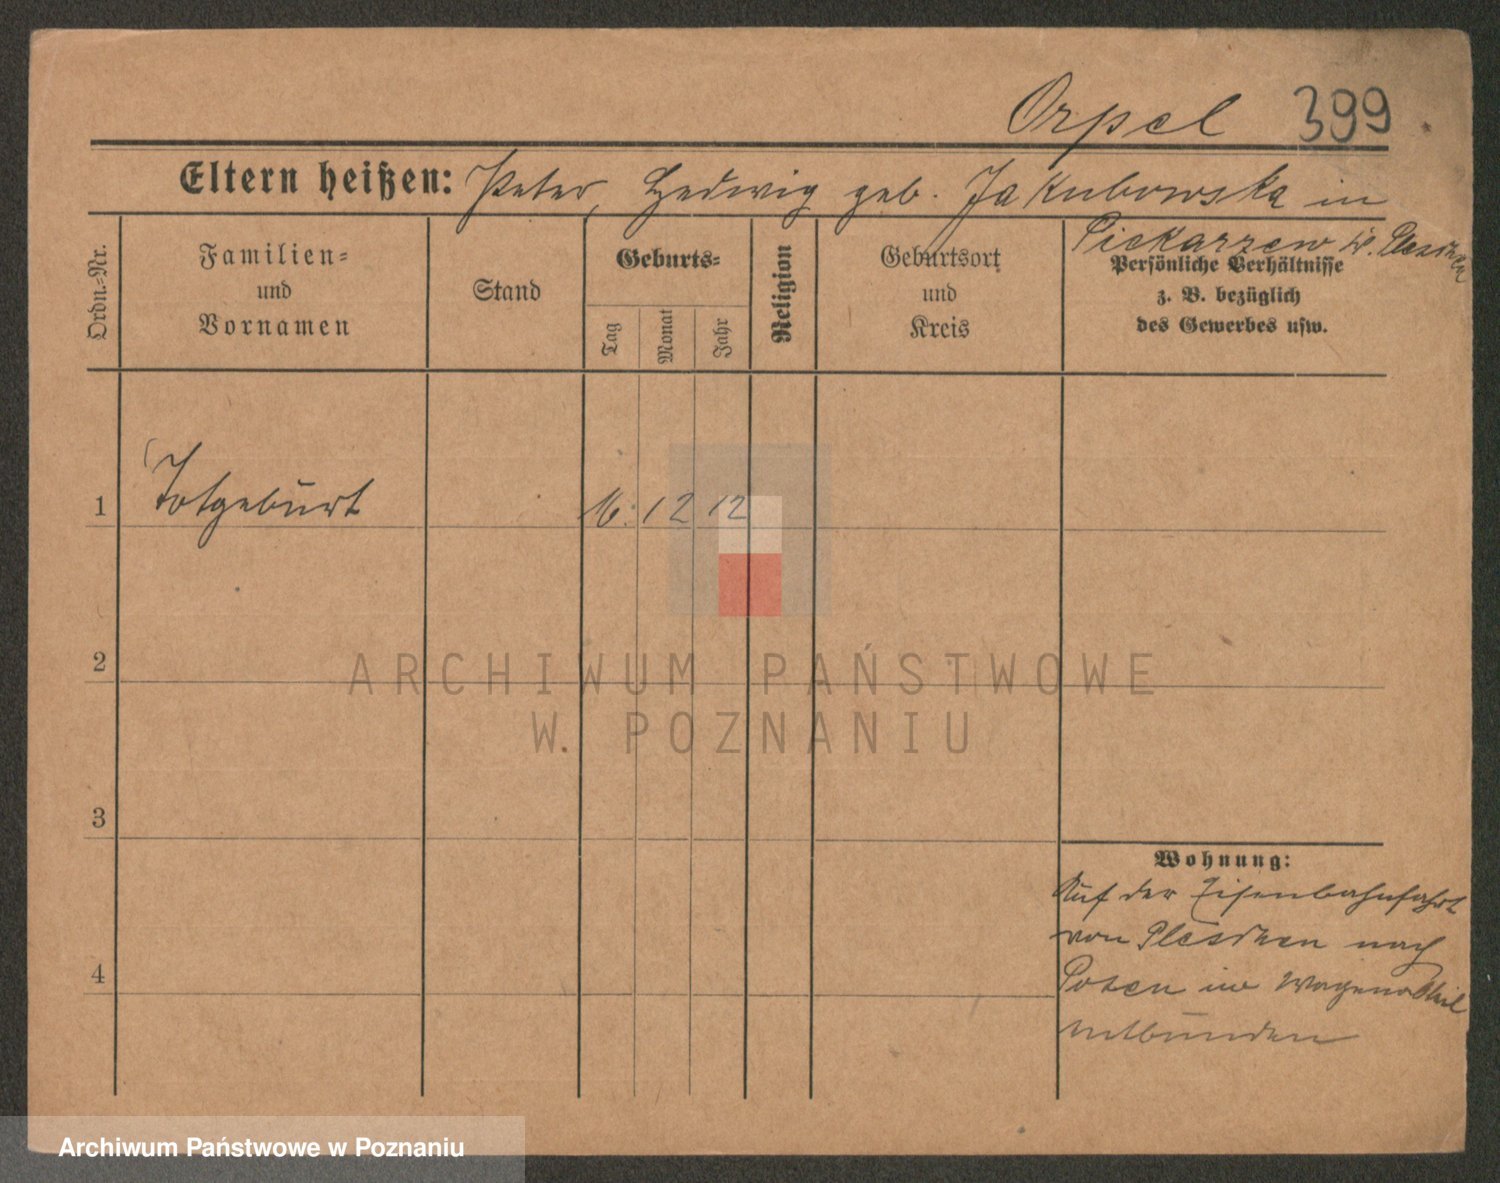 Orpel 399
Eltern heißen: Peter, Hedwig geb. Jakubowska in
Piekarzew Kr. Pleschen
Ordn.-Nr.
Familien-
und
Vornamen
Stand
Geburts-
Tag
Monat
Jahr
Religion
Geburtsort
und
Kreis
Persönliche Verhältnisse
z. B. bezüglich
des Gewerbes usw.
1 Totgeburt 16. 12 12
2
3
4
Wohnung:
Auf der Eisenbahnfahrt
von Pleschen nach
Posen im Wagenabteil
entbunden
ARCHIWUM PAŃSTWOWE
W POZNANIU
Archiwum Państwowe w Poznaniu